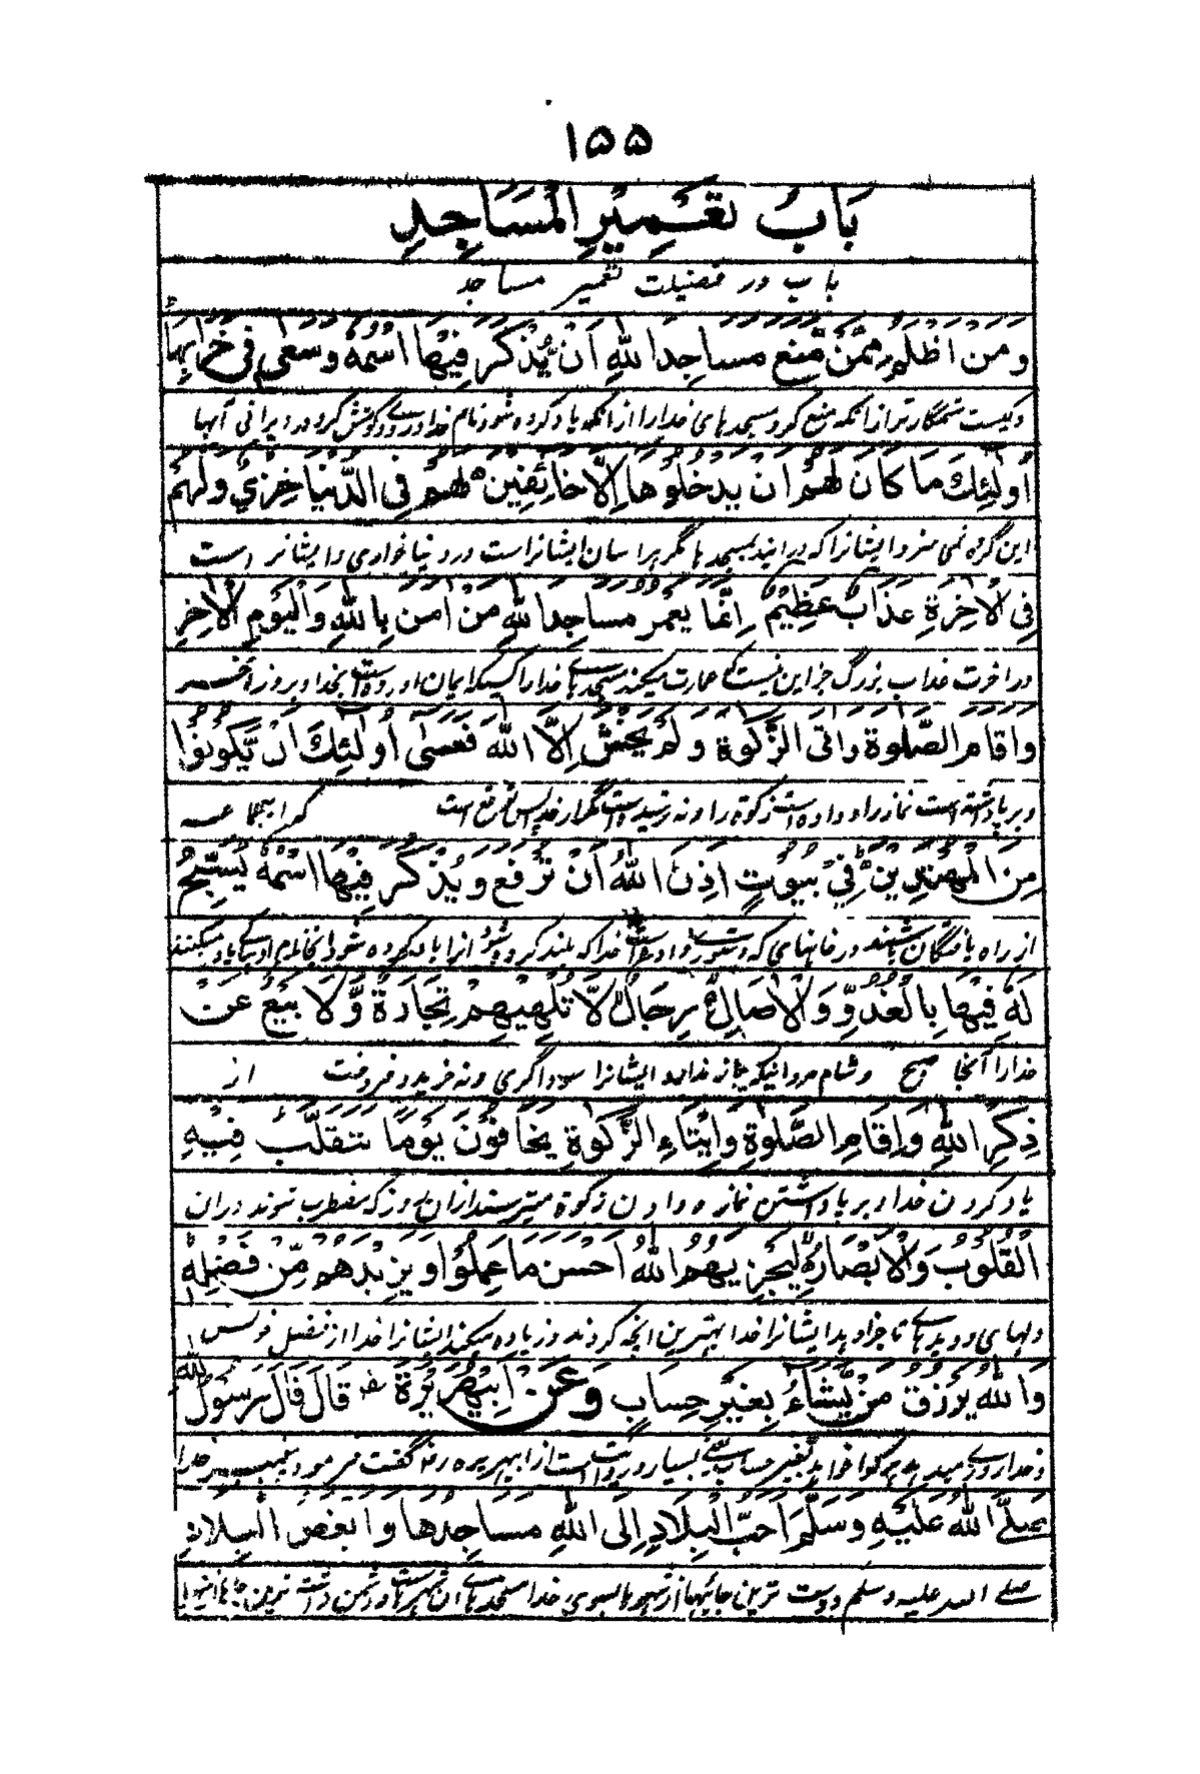 ۱۵۵
بَابُ تَعْمِيْرِ الْمَسَاجِدِ
باب در فضیلت تعمیر مساجد
وَمَنْ اَظْلَمُ مِمَّنْ مَّنَعَ مَسَاجِدَ اللهِ اَنْ يُّذْكَرَ فِيْهَا اسْمُهٗ وَسَعٰى فِيْ خَرَابِهَا
وکیست ستمگارتر از آنکه منع کرد مسجدهای خدا را از آنکه یاد کرده شود نام خدا دروے و کوشش کرد در ویرانی آنها
اُولٰئِكَ مَا كَانَ لَهُمْ اَنْ يَدْخُلُوْهَا اِلَّا خَائِفِيْنَ لَهُمْ فِي الدُّنْيَا خِزْيٌ وَلَهُمْ
این گروه نمی سزد ایشانرا که در آیند بمسجدها مگر هراسان ایشانراست در دنیا خواری و ایشانر است
فِي الْاٰخِرَةِ عَذَابٌ عَظِيْمٌ اِنَّمَا يَعْمُرُ مَسَاجِدَ اللهِ مَنْ اٰمَنَ بِاللهِ وَالْيَوْمِ الْاٰخِرِ
در اخرت عذاب بزرگ جز این نیست که عمارت میکند مسجدہاے خدا را کسیکه ایمان اورده است بخدا و بروز آخر
وَاَقَامَ الصَّلٰوةَ وَاٰتَى الزَّكٰوةَ وَلَمْ يَخْشَ اِلَّا اللهَ فَعَسٰى اُولٰئِكَ اَنْ يَّكُوْنُوْا
وبرپا داشته است نماز را و داده است زکوة را و نه ترسیده است مگر از خدا پس متوقع است که اینجماعه
مِنَ الْمُهْتَدِيْنَ فِيْ بُيُوْتٍ اَذِنَ اللهُ اَنْ تُرْفَعَ وَيُذْكَرَ فِيْهَا اسْمُهٗ يُسَبِّحُ
از راه یافتگان باشند در خانهای که دستوری داده است خدا که بلند کرده شود انرا و یاد کرده شود انجا نام او بپاکی یاد میکنند
لَهٗ فِيْهَا بِالْغُدُوِّ وَالْاٰصَالِ رِجَالٌ لَّا تُلْهِيْهِمْ تِجَارَةٌ وَّلَا بَيْعٌ عَنْ
خدارا آنجا صبح وشام مردانیکه باز ندارد ایشانرا سوداگری ونه خرید و فروخت از
ذِكْرِ اللهِ وَاِقَامِ الصَّلٰوةِ وَاِيْتَاءِ الزَّكٰوةِ يَخَافُوْنَ يَوْمًا تَتَقَلَّبُ فِيْهِ
یاد کردن خدا و برپا داشتن نماز و دادن زکوة میترسند از ان روز که مضطرب شوند دران
الْقُلُوْبُ وَالْاَبْصَارُ لِيَجْزِيَهُمُ اللهُ اَحْسَنَ مَا عَمِلُوْا وَيَزِيْدَهُمْ مِّنْ فَضْلِهٖ
دلهای و دیدہاے تا جزا دہد ایشانرا خدا بہترین انچه کردند و زیاده میکند ایشانرا خدا از فضل خویش
وَاللهُ يَرْزُقُ مَنْ يَّشَاءُ بِغَيْرِ حِسَابٍ وَعَنْ اَبِيْ هُرَيْرَةَ رض قَالَ قَالَ رَسُوْلُ اللهِ
وخدا روزے میدہد ہر کرا خواہد بغیر حساب یعنے بسیار و روایت است از ابیہریره رض گفت فرمود پیغمبر خدا
صَلَّى اللهُ عَلَيْهِ وَسَلَّمَ اَحَبُّ الْبِلَادِ اِلَى اللهِ مَسَاجِدُهَا وَاَبْغَضُ الْبِلَادِ
صلے الله علیه وسلم دوست ترین جائیها از شہرها بسوی خدا مسجدہاے ان شهرہاست و دشمن داشته ترین